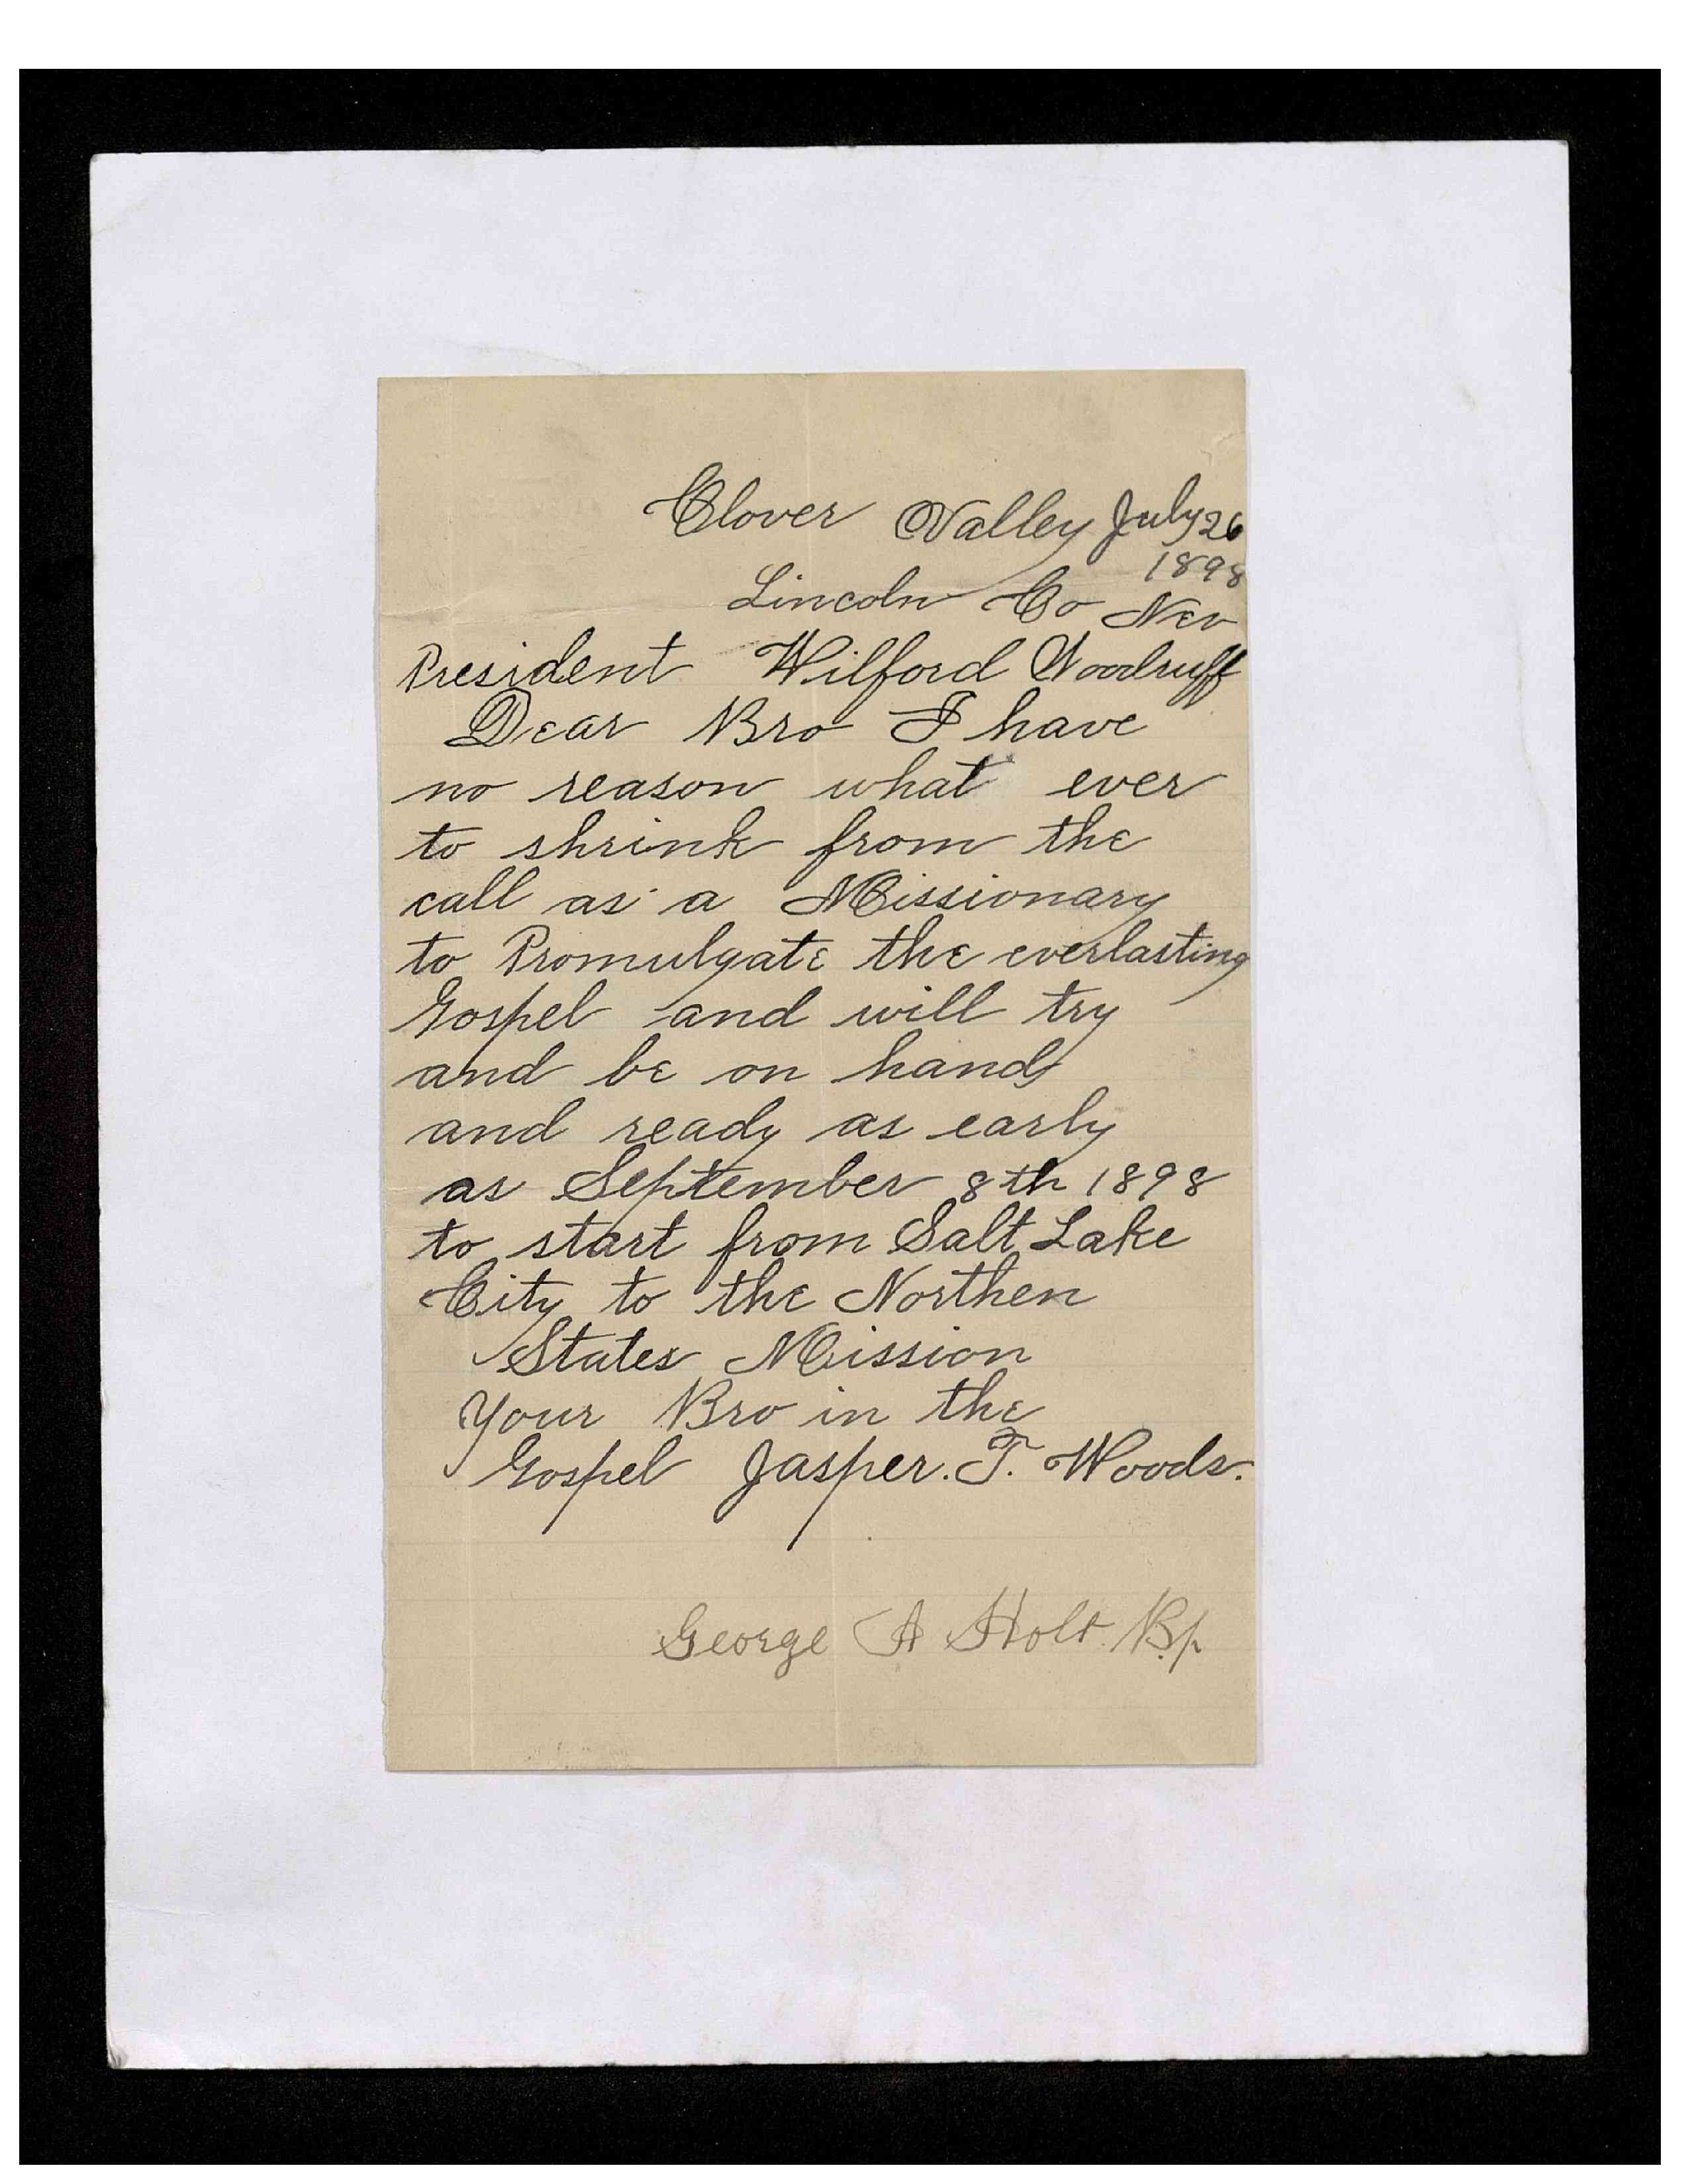 Clover Valley July 26
1898
Lincoln Co Nev
President Wilford Woodruff
Dear Bro I have
no reason what ever
to shrink from the
call as a Missionary
to Promulgate the everlasting
Gospel and will try
and be on hand
and ready as early
as September 8th 1898
to start from Salt Lake
City to the Northen
States Mission
Your Bro in the
Gospel Jasper. T. Woods.
George A Holt. Bp